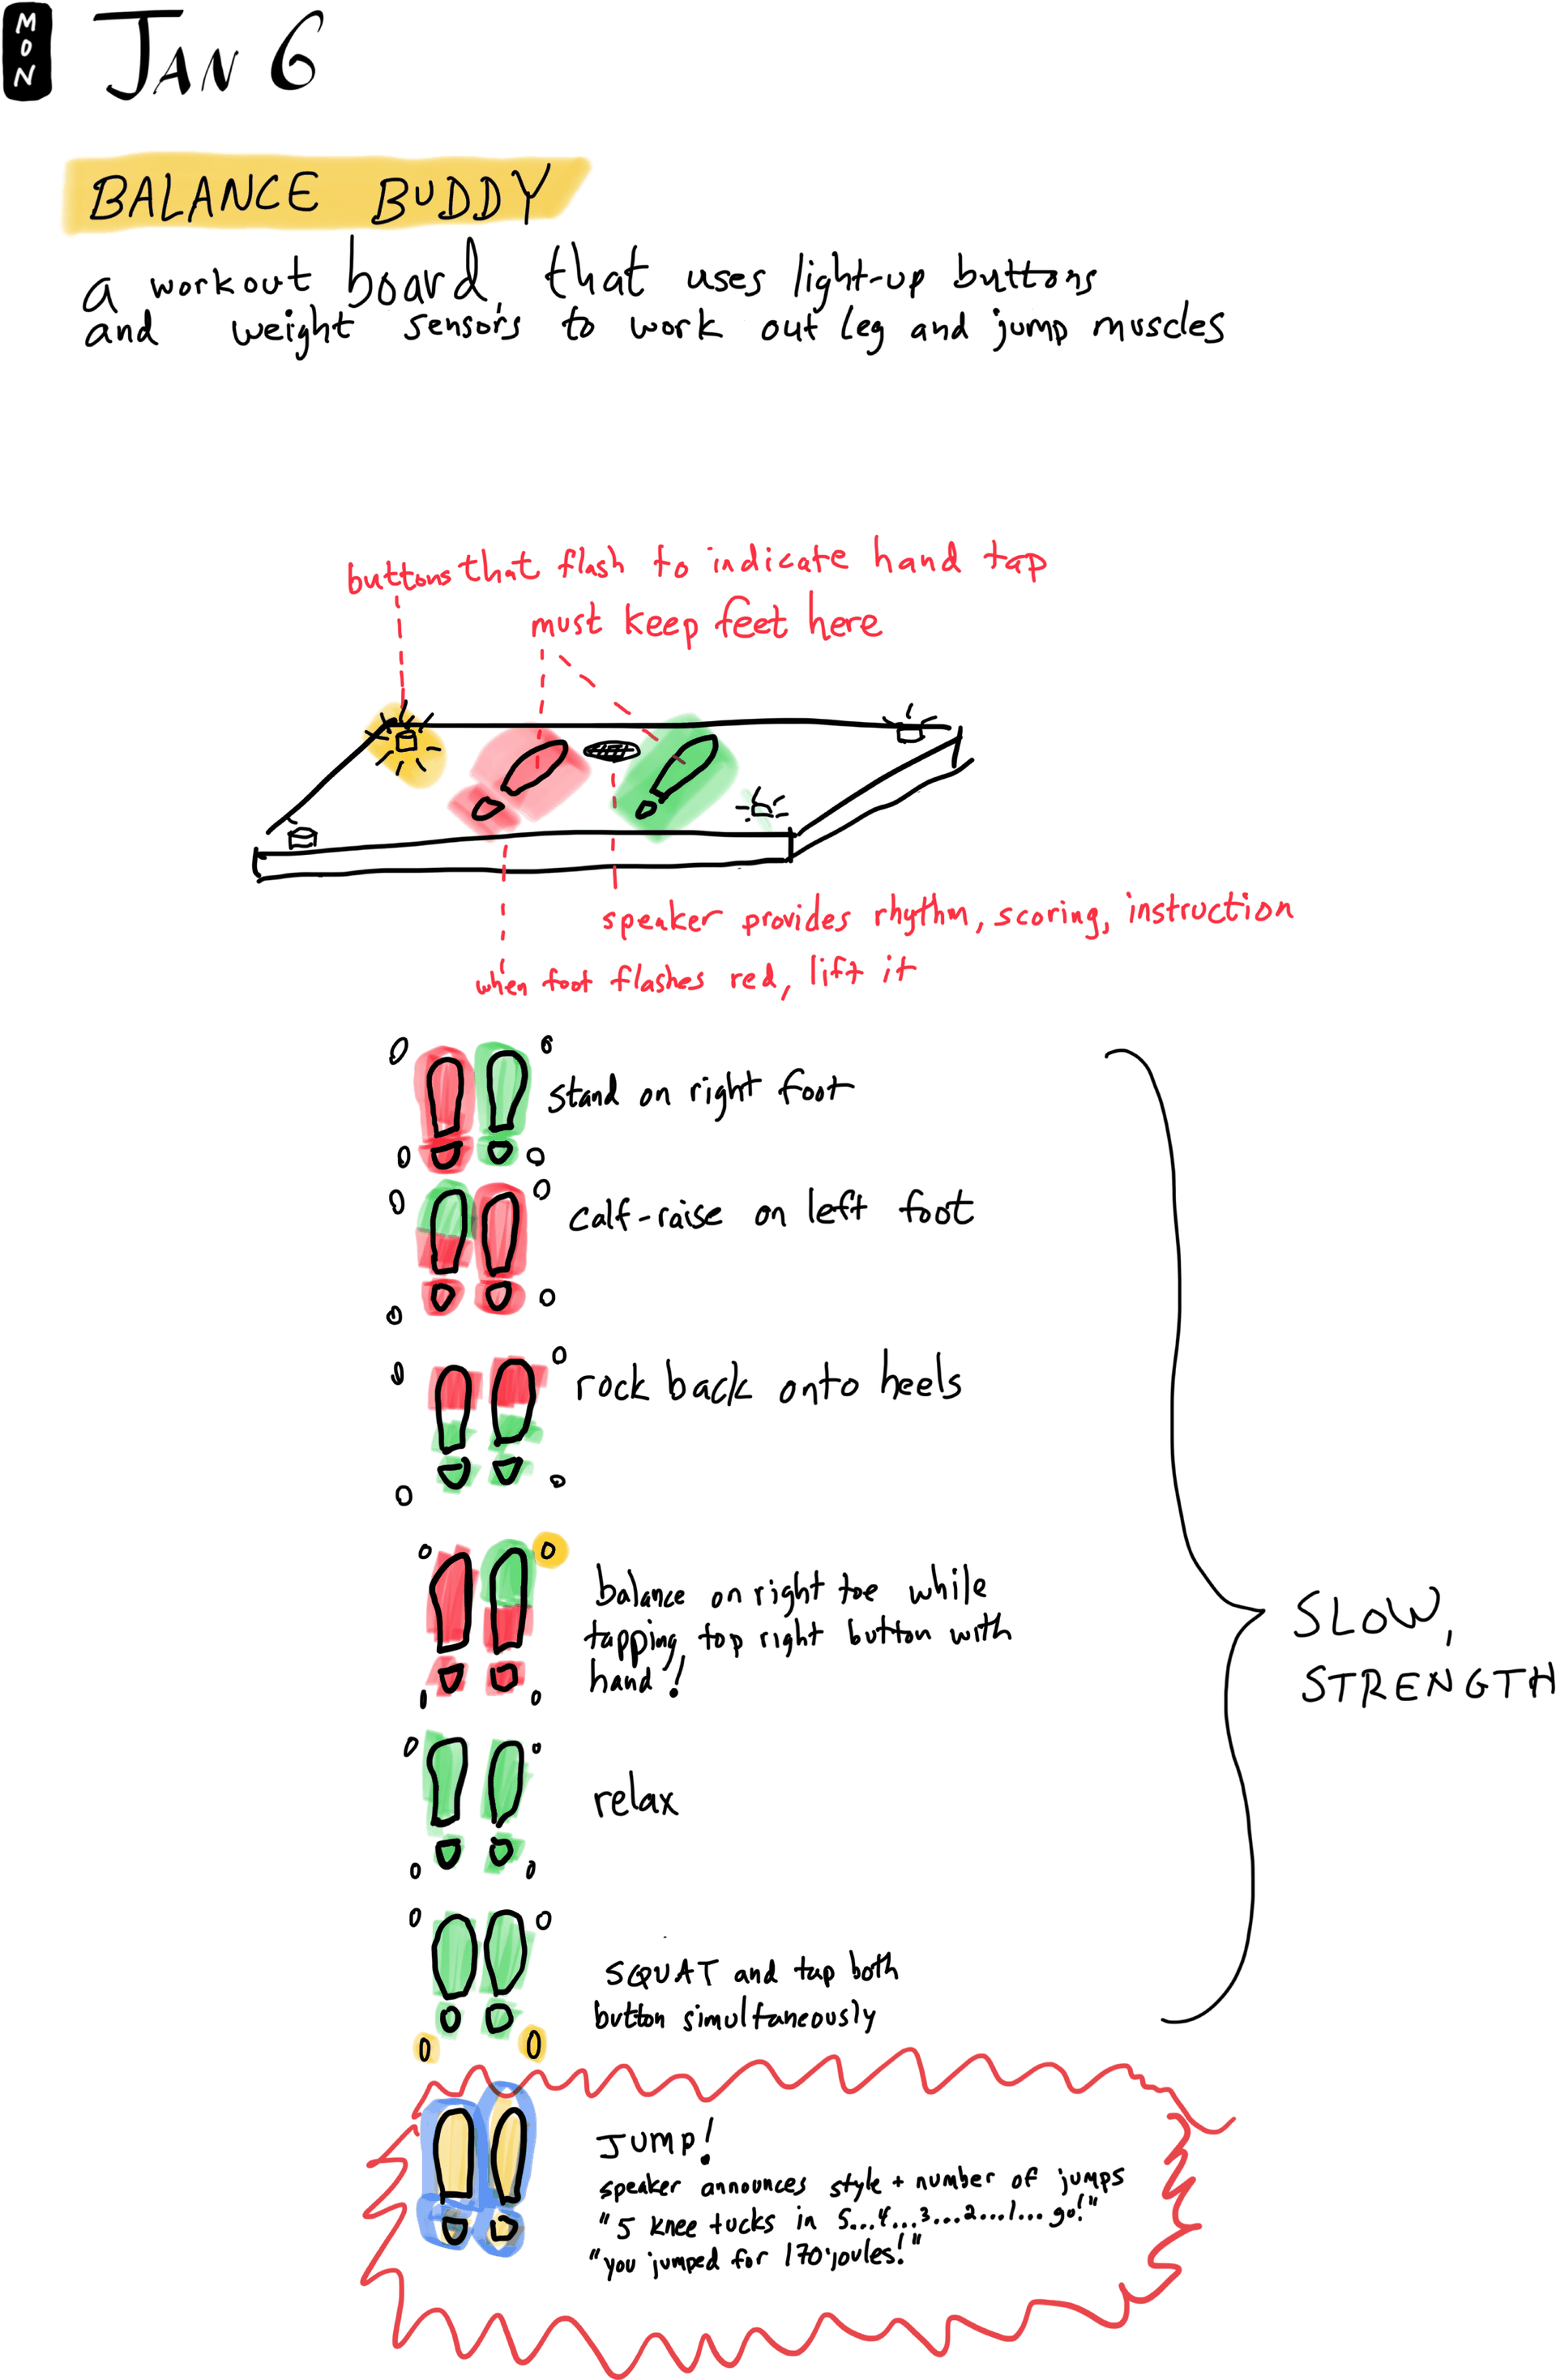 MON
JAN 6
BALANCE BUDDY
a workout board that uses light-up buttons
and weight sensors to work out leg and jump muscles
buttons that flash to indicate hand tap
must keep feet here
speaker provides rhythm, scoring, instruction
when foot flashes red, lift it
stand on right foot
calf-raise on left foot
rock back onto heels
balance on right toe while
tapping top right button with
hand!
SLOW,
STRENGTH
relax
SQUAT and tap both
button simultaneously
JUMP!
speaker announces style + number of jumps
"5 knee tucks in 5...4...3...2...1... go!"
"you jumped for 170 joules!"